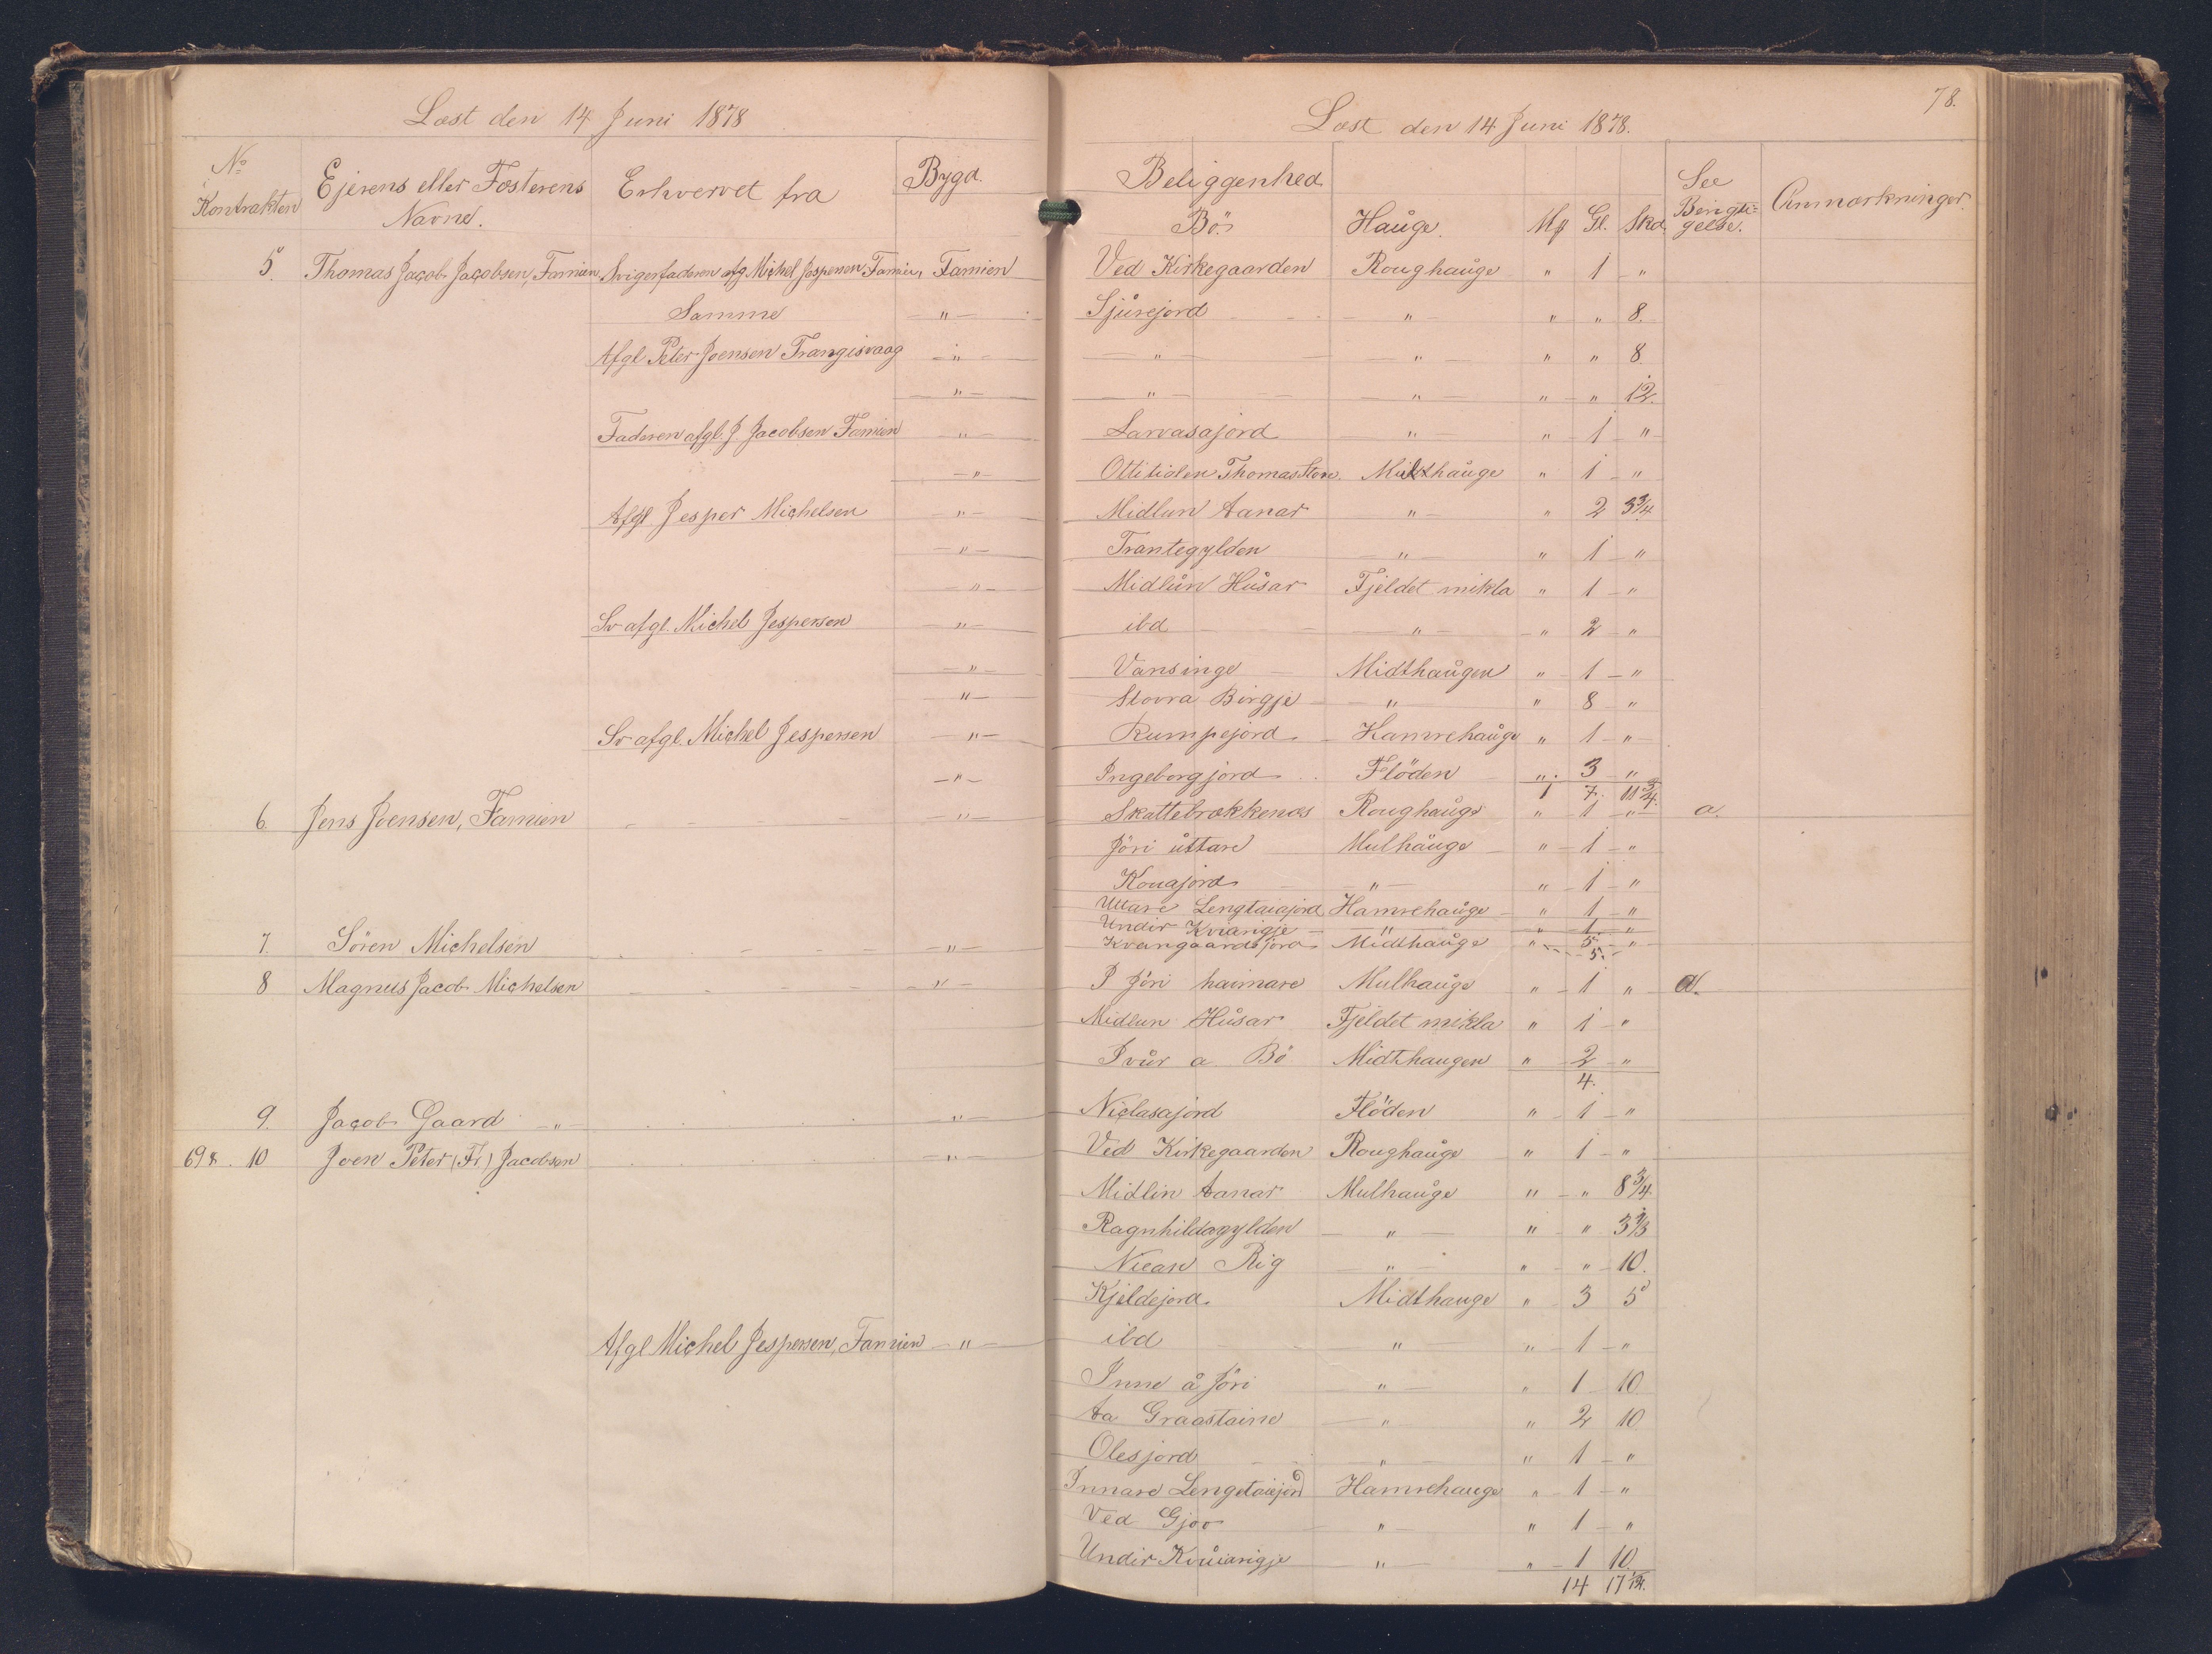 Læst den 14 Juni 1878
No i Kontrakten
Ejerens eller Fæsterens Navne.
Erhvervet fra
Bygd.
5. Thomas Jacob Jacobsen, Famien Svigerfaderen afg. Michel Jespersen Famien, Famien
Samme — " —
Afgl Peter Joensen Trangisvaag — " —
— " —
Faderen afgl. J. Jacobsen Famien — " —
— " —
Afgl Jesper Michelsen — " —
— " —
— " —
Sv afgl. Michel Jespersen — " —
— " —
— " —
Sv afgl. Michel Jespersen — " —
— " —
6. Jens Joensen, Famien — " —
7. Sören Michelsen — " —
8 Magnus Jacob Michelsen — " —
9. Jacob Gaard — " — — " —
698. 10 Joen Peter (Fr) Jacobsen — " —
Afgl Michel Jespersen, Famien — " —
78.
Læst den 14 Juni 1878.
Beliggenhed
Bö. Hauge. Mk Gl. Skd.
See Bengti-gelse.
Anmærkninger.
Ved Kirkegaarden Roughauge " 1 "
Sjúrejord " " " 8.
" " " " 8
" " " " 12.
Larvasajord " " 1 "
Ottitiolen Thomas Stove Midthauge " 1 "
Midlun Aanar " " 2 3 3/4
Trantegylden " " 1 "
Midlun Húsar Fjeldet mikla " 1 "
ibd " " 2 "
Vansinge Midthaugen " 1 "
Stovra Birgje " " 8 "
Rumpejord Hamrehauge " 1 "
Ingeborgjord Flöden " 3 "
1 7. 11 3/4.
Skattebrekkenes Roughauge " 1 " a.
Jöri úttare Mulhauge " 1 "
Konajord " " 1 "
Uttare Lengtaiajord Hamrehauge " 1 "
Undir Kviarigje " " 1 "
5.
Kvangaardsjord Midthauge " 5. "
I Jöri haimare Mulhauge " 1 " a.
Midlun Húsar Fjeldet mikla " 1 "
Ivúr a Bö Midthaugen " 2 "
4.
Niclasajord Flöden " 1 "
Ved Kirkegaarden Roughauge " 1 "
Midlin Aanar Mulhauge " " 8 3/4.
Ragnhildagylden " " " 3 1/3
Niean Rig " " " 10.
Kjeldejord. Midthauge " 3 5
ibd " " 1 "
Inne å Jöri " " 1 10
Aa Graastaine " " 2 10
Olesjord " " 1 "
Innare Lengetaiejord Hamrehauge " 1 "
Ved Gjov " " 1 "
Undir Kvúiarigje " " 1 10.
14 17 1/12.